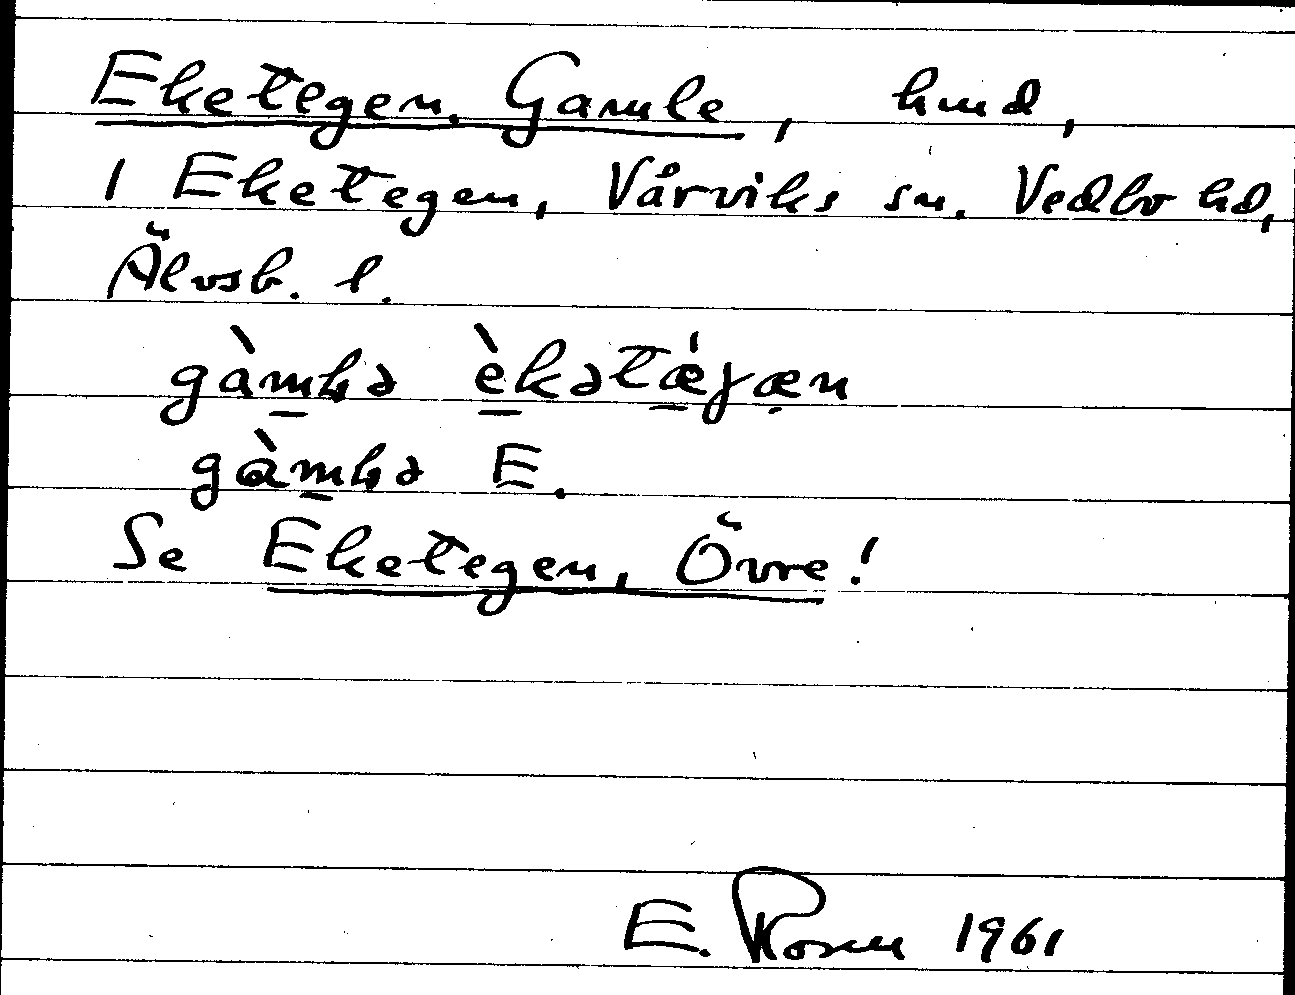 Eketegen, Gamle, hmd,
i Eketegen, Vårviks sn. Vedbo hd,
Älvsb. l.
gàmlə èkətǽɡæn
gàmlə E.
Se Eketegen, Övre!
E. Rosen 1961